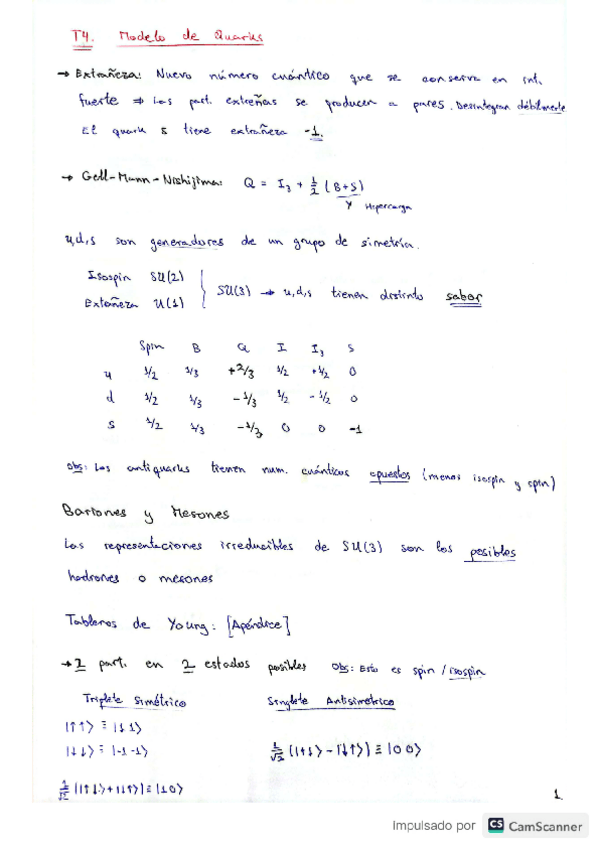 T4. Modelo de Quarks
→ Extrañeza: Nuevo número cuántico que se conserva en int.
fuerte ⇒ Las part. extreñas se producen a pares. Desintegran débilmente
El quark s tiene extrañeza -1.
→ Gell-Mann-Nishijima: Q = I₃ + 1/2 (B+S)
Y Hipercarga
u,d,s son generadores de un grupo de simetría.
Isospin SU(2)
Extrañeza U(1)
SU(3) → u,d,s tienen distinto sabor
Spin B Q I I₃ S
u 1/2 1/3 +2/3 1/2 +1/2 0
d 1/2 1/3 -1/3 1/2 -1/2 0
s 1/2 1/3 -1/3 0 0 -1
Obs: Los antiquarks tienen num. cuánticos opuestos (menos isospin y spin)
Bariones y Mesones
Las representaciones irreducibles de SU(3) son los posibles
hadrones o mesones
Tableros de Young: [Apéndice]
→ 2 part. en 2 estados posibles Obs: Esto es spin / isospin
Triplete Simétrico Singlete Antisimétrico
|↑↑⟩ ≡ |1 1⟩
|↓↓⟩ ≡ |-1 -1⟩ 1/√2 (|↑↓⟩ - |↓↑⟩) ≡ |0 0⟩
1/√2 (|↑↓⟩ + |↓↑⟩) ≡ |1 0⟩
1.
Impulsado por CS CamScanner